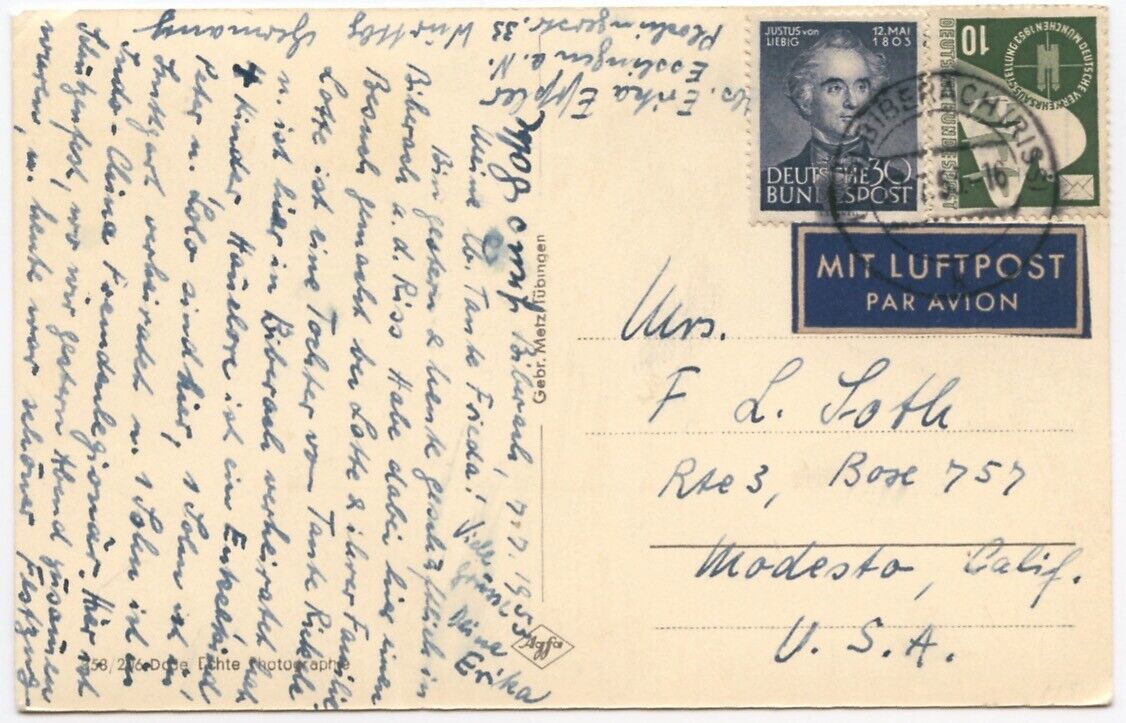 Abs. Erika Eppler
Esslingen a. N.
Plochingerstr. 33
Württbg
Germany
Biberach, 7.7.1953
Meine lb. Tante Frieda!
Bin gestern & heute geschäftlich in
Biberach a. d. Riss. Habe dabei hier einen
Besuch gemacht bei Lotte & ihrer Familie
Lotte ist eine Tochter von Tante Rickele
u. ist hier in Biberach verheiratet hat
4 Kinder, Hanelore ist ein Enkelkind
Peter u. Lolo sind hier, 1 Sohn ist in
Stuttgart verheiratet u. 1 Sohn ist in
Indo-China Fremdenlegionär. Hier ist
Schützenfest, wo wir gestern Abend zusammen
waren, u. heute war schöner Festzug
Viele
Grüsse
Deine
Erika
Gebr. Metz, Tübingen
Agfa
Echte Photographie
JUSTUS von LIEBIG
12. MAI 1803
DEUTSCHE BUNDESPOST
30
10
DEUTSCHE BUNDESPOST
DEUTSCHE VERKEHRSAUSSTELLUNG MÜNCHEN 1953
BIBERACH (RISS)
16
MIT LUFTPOST
PAR AVION
Mrs.
F L. Soth
Rte 3, Boxe 757
Modesto, Calif.
U. S. A.